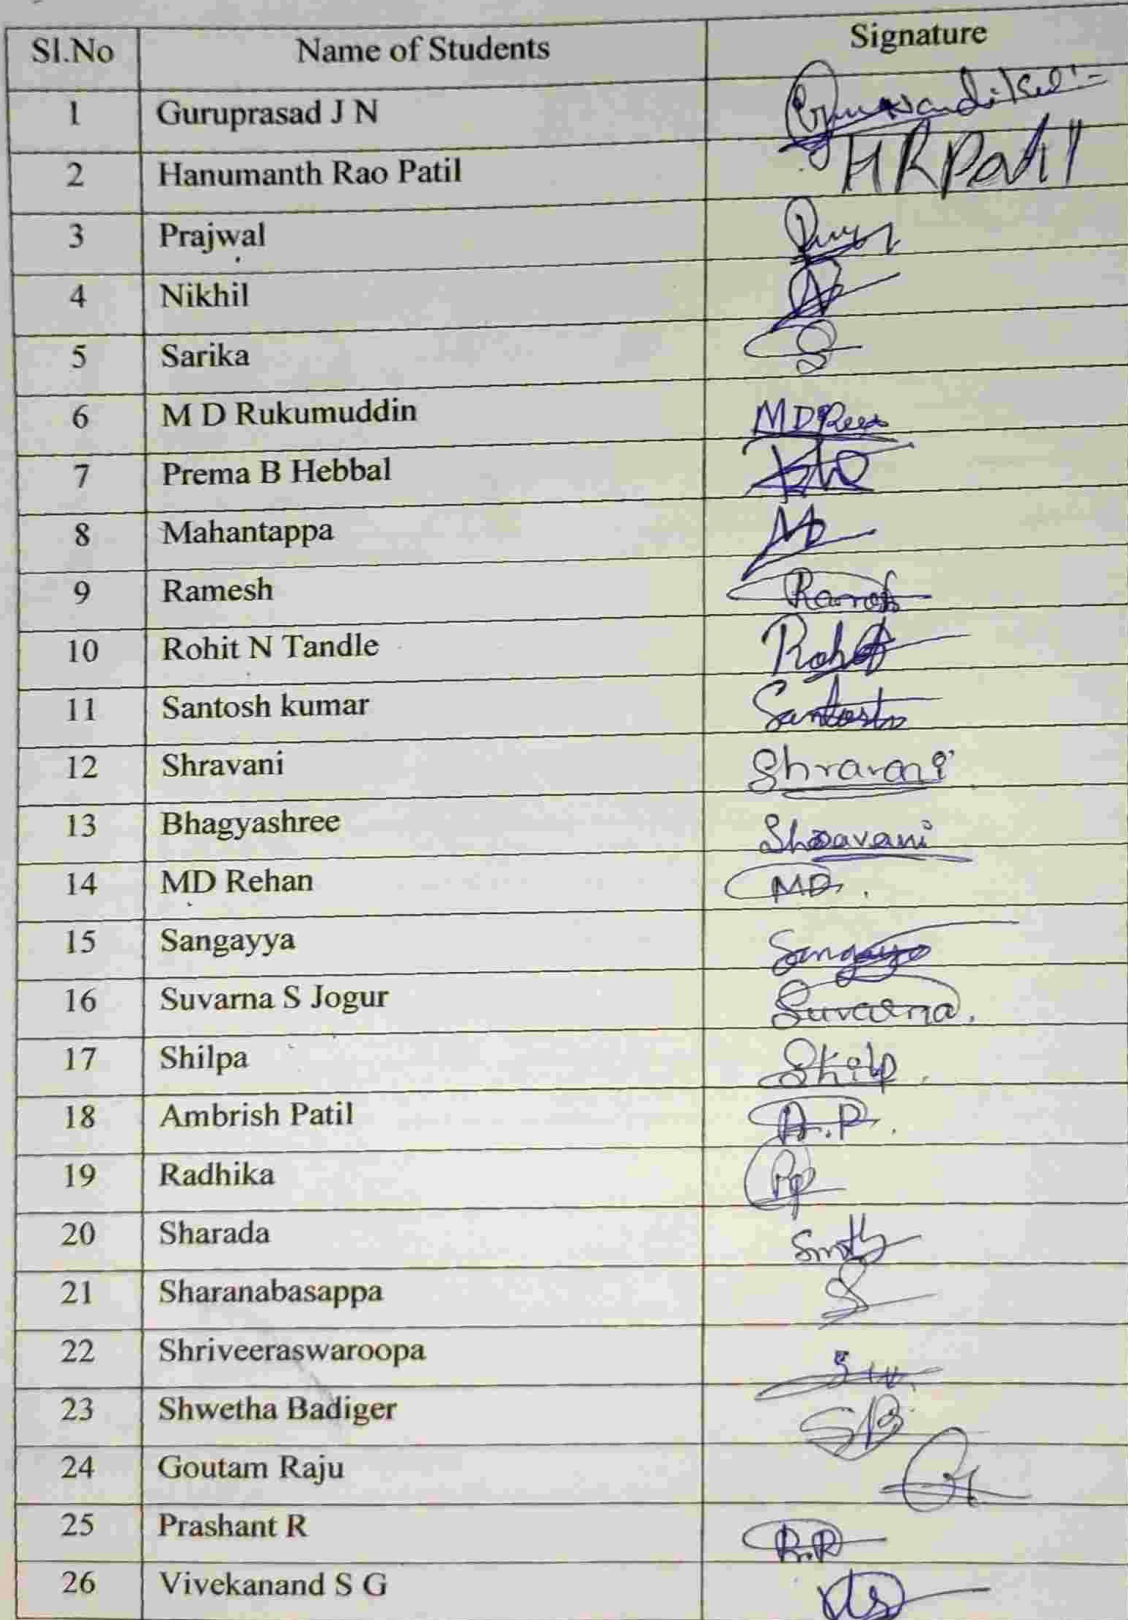 Sl.No Name of Students Signature
1 Guruprasad J N
2 Hanumanth Rao Patil HRPatil
3 Prajwal
4 Nikhil
5 Sarika
6 M D Rukumuddin
7 Prema B Hebbal
8 Mahantappa
9 Ramesh
10 Rohit N Tandle Rohit
11 Santosh kumar Santosh
12 Shravani Shravani
13 Bhagyashree Shravani
14 MD Rehan MD.
15 Sangayya
16 Suvarna S Jogur Suvarna.
17 Shilpa Shilp.
18 Ambrish Patil A.P.
19 Radhika
20 Sharada
21 Sharanabasappa
22 Shriveeraswaroopa
23 Shwetha Badiger SB
24 Goutam Raju
25 Prashant R
26 Vivekanand S G